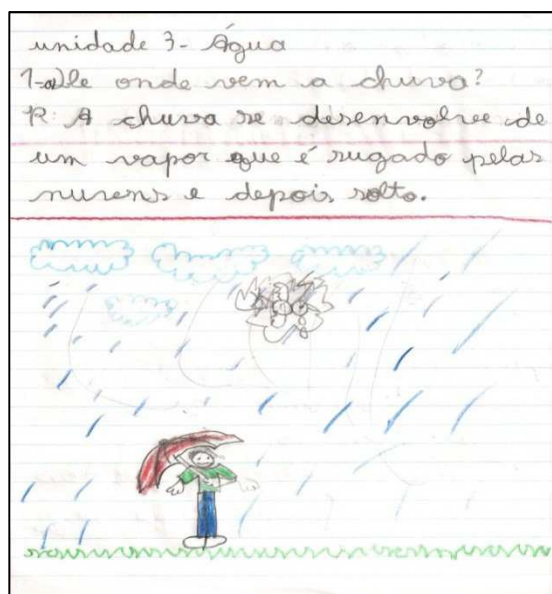 unidade 3- Água
1-a) De onde vem a chuva?
R: A chuva se desenvolve de
um vapor que é sugado pelas
nuvens e depois solto.